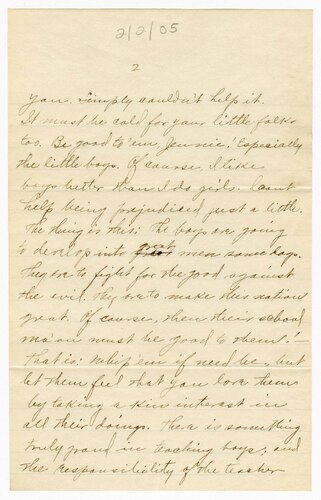 2/2/05
2
you. Simply couldn't help it.
It must be cold for your little folks
too. Be good to 'em, Jennie! Especially
the little boys. Of course, I like
boys better than I do girls. I can't
help being prejudiced just a little.
The thing is this: The boys are going
to develop into great men some day.
They are to fight for the good against
the evil. They are to make this nation
great. Of course, then their school
ma'am must be good to them! –
That is: Whip 'em if need be, but
let them feel that you love them
by taking a kin interest in
all their doings. There is something
truly grand in teaching boys; and
the responsibility of the teacher